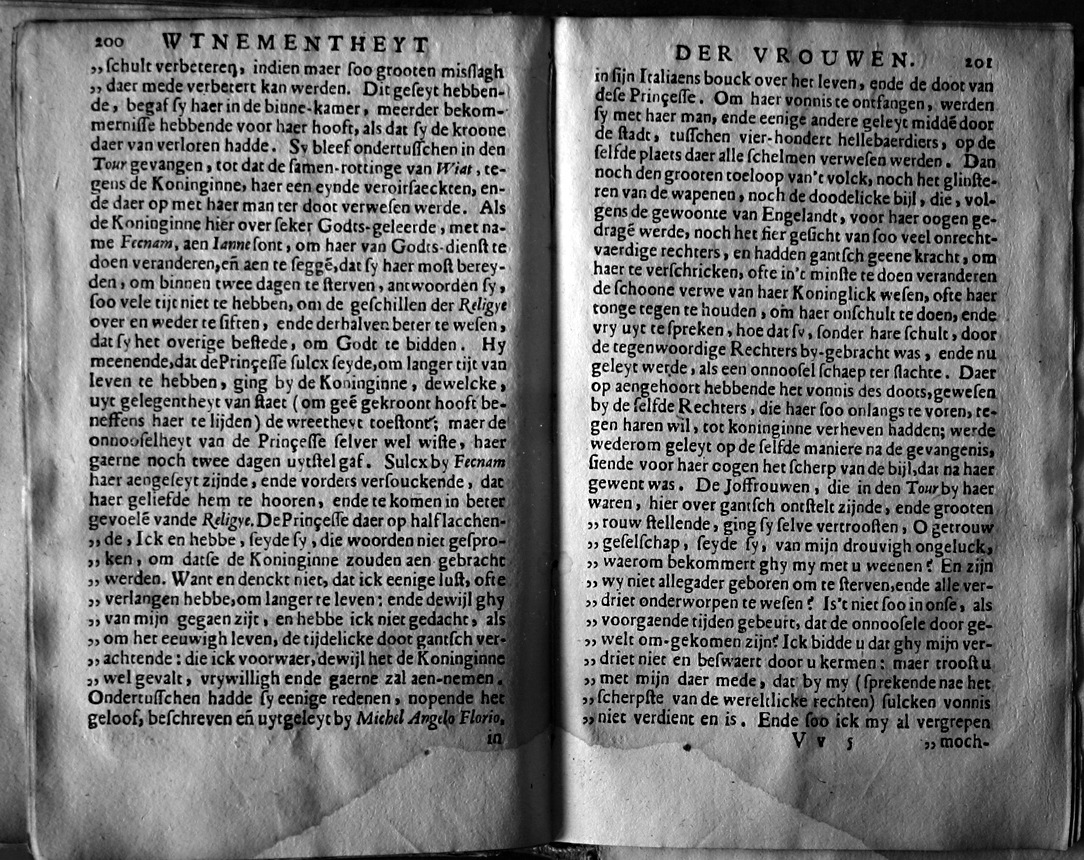 200 WTNEMENTHEYT
„ ſchult verbeteren, indien maer ſoo grooten misſlagh
„ daer mede verbetert kan werden. Dit geſeyt hebben-
de, begaf ſy haer in de binne-kamer, meerder bekom-
merniſſe hebbende voor haer hooft, als dat ſy de kroone
daer van verloren hadde. Sy bleef ondertuſſchen in den
Tour gevangen, tot dat de ſamen-rottinge van Wiat, te-
gens de Koninginne, haer een eynde veroirſaeckten, en-
de daer op met haer man ter doot verweſen werde. Als
de Koninginne hier over ſeker Godts-geleerde, met na-
me Fecnam, aen Ianne ſont, om haer van Godts-dienſt te
doen veranderen, eñ aen te ſeggē, dat ſy haer moſt berey-
den, om binnen twee dagen te ſterven, antwoorden ſy,
ſoo vele tijt niet te hebben, om de geſchillen der Religye
over en weder te ſiften, ende derhalven beter te weſen,
dat ſy het overige beſtede, om Godt te bidden. Hy
meenende, dat de Prinçeſſe ſulcx ſeyde, om langer tijt van
leven te hebben, ging by de Koninginne, dewelcke,
uyt gelegentheyt van ſtaet (om geē gekroont hooft be-
neffens haer te lijden) de wreetheyt toeſtont; maer de
onnooſelheyt van de Prinçeſſe ſelver wel wiſte, haer
gaerne noch twee dagen uytſtel gaf. Sulcx by Fecnam
haer aengeſeyt zijnde, ende vorders verſouckende, dat
haer geliefde hem te hooren, ende te komen in beter
gevoelē vande Religye. De Prinçeſſe daer op half lacchen-
„ de, Ick en hebbe, ſeyde ſy, die woorden niet geſpro-
„ ken, om datſe de Koninginne zouden aen gebracht
„ werden. Want en denckt niet, dat ick eenige luſt, ofte
„ verlangen hebbe, om langer te leven: ende dewijl ghy
„ van mijn gegaen zijt, en hebbe ick niet gedacht, als
„ om het eeuwigh leven, de tijdelicke doot gantſch ver-
„ achtende: die ick voorwaer, dewijl het de Koninginne
„ wel gevalt, vrywilligh ende gaerne zal aen-nemen.
Ondertuſſchen hadde ſy eenige redenen, nopende het
geloof, beſchreven eñ uytgeleyt by Michel Angelo Florio,
in
DER VROUWEN. 201
in ſijn Italiaens bouck over het leven, ende de doot van
deſe Prinçeſſe. Om haer vonnis te ontfangen, werden
ſy met haer man, ende eenige andere geleyt middē door
de ſtadt, tuſſchen vier-hondert hellebaerdiers, op de
ſelfde plaets daer alle ſchelmen verweſen werden. Dan
noch den grooten toeloop van't volck, noch het glinſte-
ren van de wapenen, noch de doodelicke bijl, die, vol-
gens de gewoonte van Engelandt, voor haer oogen ge-
dragē werde, noch het fier geſicht van ſoo veel onrecht-
vaerdige rechters, en hadden gantſch geene kracht, om
haer te verſchricken, ofte in't minſte te doen veranderen
de ſchoone verwe van haer Koninglick weſen, ofte haer
tonge tegen te houden, om haer onſchult te doen, ende
vry uyt te ſpreken, hoe dat ſy, ſonder hare ſchult, door
de tegenwoordige Rechters by-gebracht was, ende nu
geleyt werde, als een onnooſel ſchaep ter ſlachte. Daer
op aengehoort hebbende het vonnis des doots, geweſen
by de ſelfde Rechters, die haer ſoo onlangs te voren, te-
gen haren wil, tot koninginne verheven hadden; werde
wederom geleyt op de ſelfde maniere na de gevangenis,
ſiende voor haer oogen het ſcherp van de bijl, dat na haer
gewent was. De Joffrouwen, die in den Tour by haer
waren, hier over gantſch ontſtelt zijnde, ende grooten
„ rouw ſtellende, ging ſy ſelve vertrooſten, O getrouw
„ geſelſchap, ſeyde ſy, van mijn drouvigh ongeluck,
„ waerom bekommert ghy my met u weenen? En zijn
„ wy niet allegader geboren om te ſterven, ende alle ver-
„ driet onderworpen te weſen? Is't niet ſoo in onſe, als
„ voorgaende tijden gebeurt, dat de onnooſele door ge-
„ welt om-gekomen zijn? Ick bidde u dat ghy mijn ver-
„ driet niet en beſwaert door u kermen: maer trooſt u
„ met mijn daer mede, dat by my (ſprekende nae het
„ ſcherpſte van de wereltlicke rechten) ſulcken vonnis
„ niet verdient en is. Ende ſoo ick my al vergrepen
V v 5 „ moch-